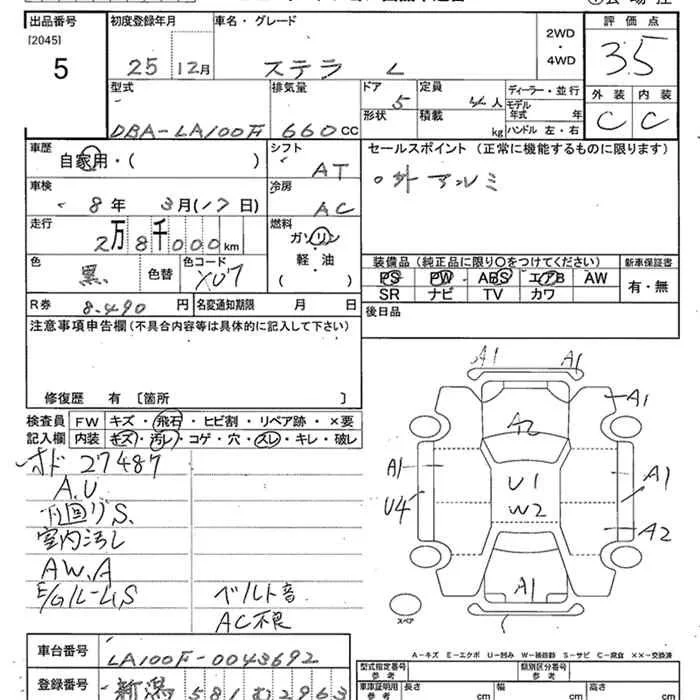 出品番号 初度登録年月 車名・グレード 2WD・4WD 評価点
[2045] 5 25 12月 ステラ L 3.5
型式 排気量 ドア 定員 ディーラー・並行 外装 内装
DBA-LA100F 660cc 5 4人 モデル年式 年 C C
形状 積載 kg ハンドル 左・右
車歴 自家用・( ) シフト AT セールスポイント (正常に機能するものに限ります)
車検 8年 3月(17日) 冷房 AC 。外アルミ
走行 2万8千000km 燃料 ガソリン・軽・油 ( )
色 黒 色替 色コード X07
装備品(純正品に限り〇をつけてください) 新車保証書
PS PW ABS エアB AW 有・無
SR ナビ TV カワ
R券 8.490円 名変通知期限 月 日 後日品
注意事項申告欄(不具合内容等は具体的に記入して下さい)
修復歴 有 [箇所 ]
検査員 FW キズ・飛石・ヒビ割・リペア跡・×要
記入欄 内装 キズ・汚レ・コゲ・穴・スレ・キレ・破レ
オド 27487
A.U
下回リS.
室内汚レ
AW.A
E/Gルーム S ベルト音
AC不良
A1 A1
A1
A2
A1 U1 A1
U4 W2
A2
A1
スペア
A-キズ E-エクボ U-凹み W-補修跡 S-サビ C-腐食 XX-交換済
車台番号 LA100F-0043692
登録番号 新潟 581 む 2963
型式指定番号 参考 類別区分番号 参考
車庫証明用 参考 長さ cm 幅 cm 高さ cm